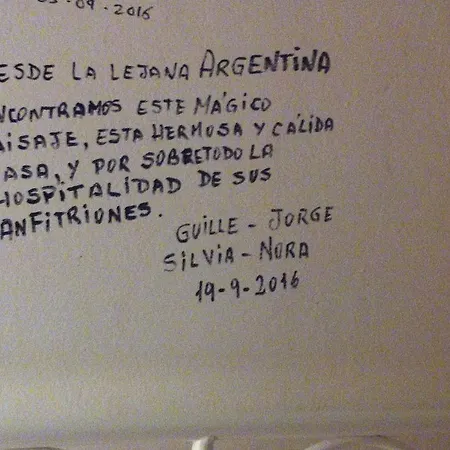 -09-2016
ESDE LA LEJANA ARGENTINA
NCONTRAMOS ESTE MÁGICO
AISAJE, ESTA HERMOSA Y CÁLIDA
ASA, Y POR SOBRETODO LA
HOSPITALIDAD DE SUS
ANFITRIONES.
GUILLE - JORGE
SILVIA - NORA
19-9-2016